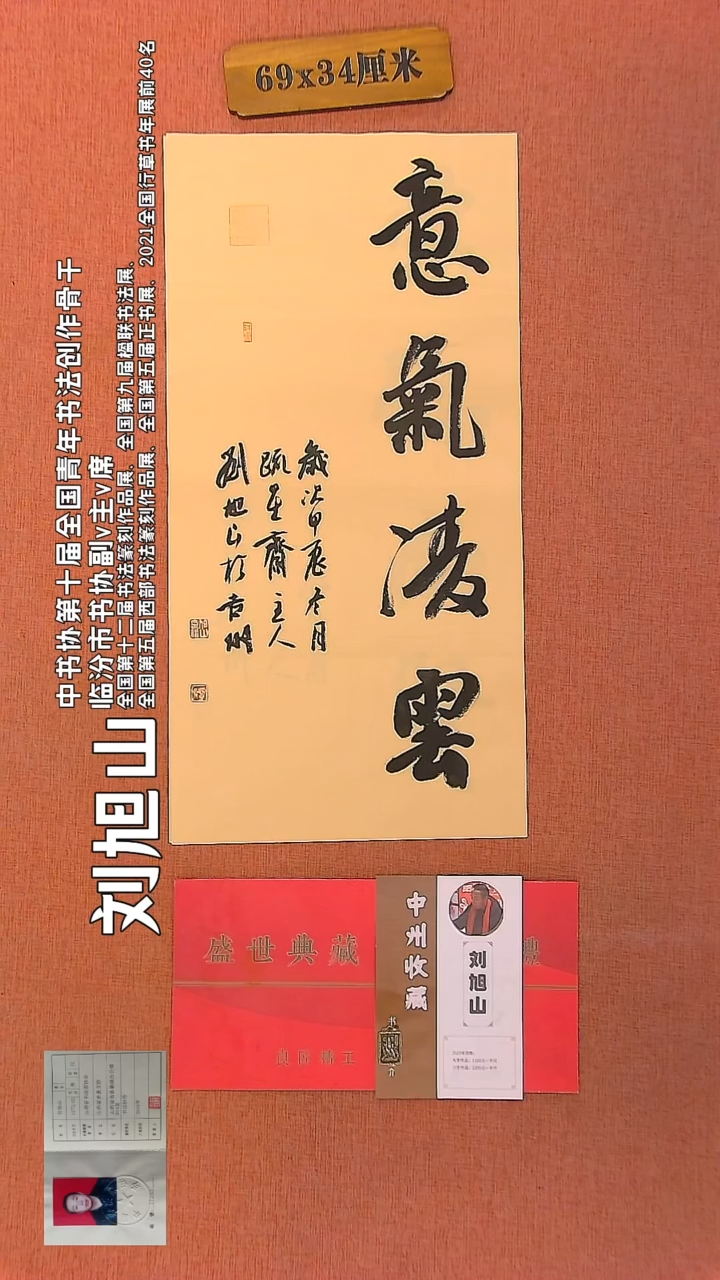 69x34厘米
意氣淩雲
歲次甲辰冬月
疏星齋主人
劉旭山於古州
刘旭山
中书协第十届全国青年书法创作骨干
临汾市书协副v主v席
全国第十二届书法篆刻作品展、全国第九届楹联书法展、
全国第五届西部书法篆刻作品展、全国第五届正书展、2021全国行草书年展前40名
盛世典藏
良匠精工
中州收藏
书
介
刘旭山
禮